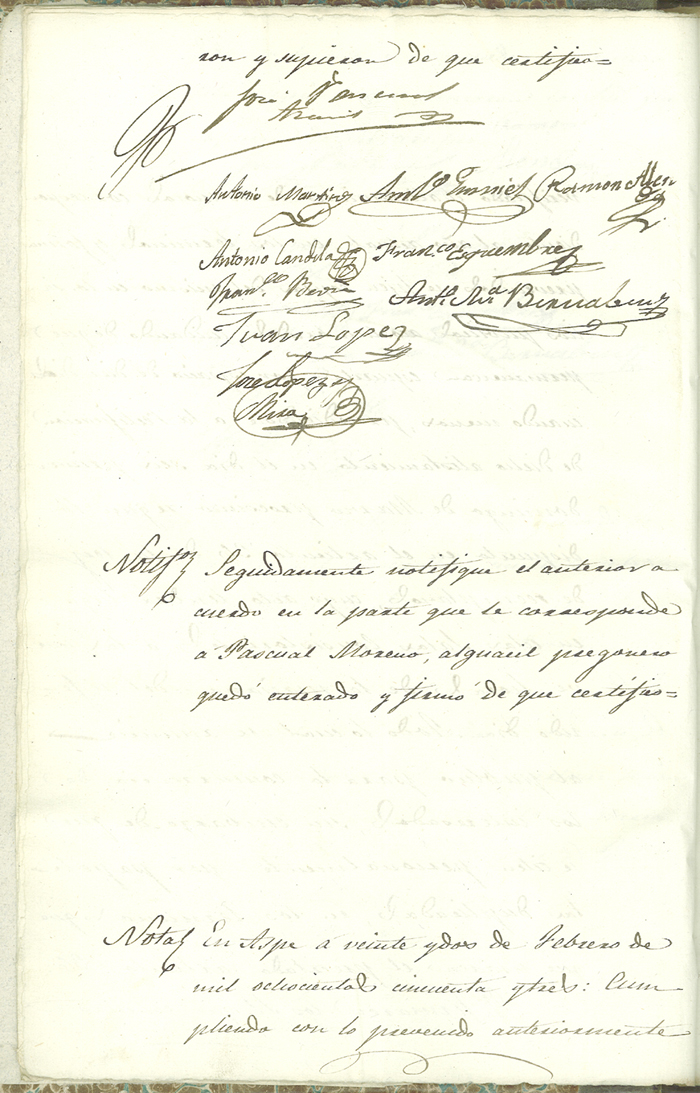 ron y supieron de que certifico=
José Pascual
Antonio Martinez Ramon Alle
Antonio Candela Fran.co Esquembre
Fran.co Ant.º Mª Bernabeu
Juan Lopez
Jose Lopez y
Mira
Notif.on Seguidamente notifique el anterior a
cuerdo en la parte que le corresponde
á Pascual Moreno, alguacil pregonero
quedó enterado y firmó de que certifico=
Nota En Aspe á veinte y dos de Febrero de
mil ochocientos cincuenta y tres: Cum
pliendo con lo prevenido anteriormente